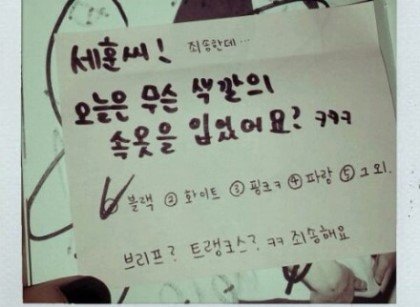 세훈씨! 죄송한데...
오늘은 무슨 색깔의
속옷을 입었어요? ㅋㅋㅋ
① 블랙 ② 화이트 ③ 핑크ㅋ ④ 파랑 ⑤ 그 외.
브리프? 트랭크스? ㅋㅋ 죄송해요